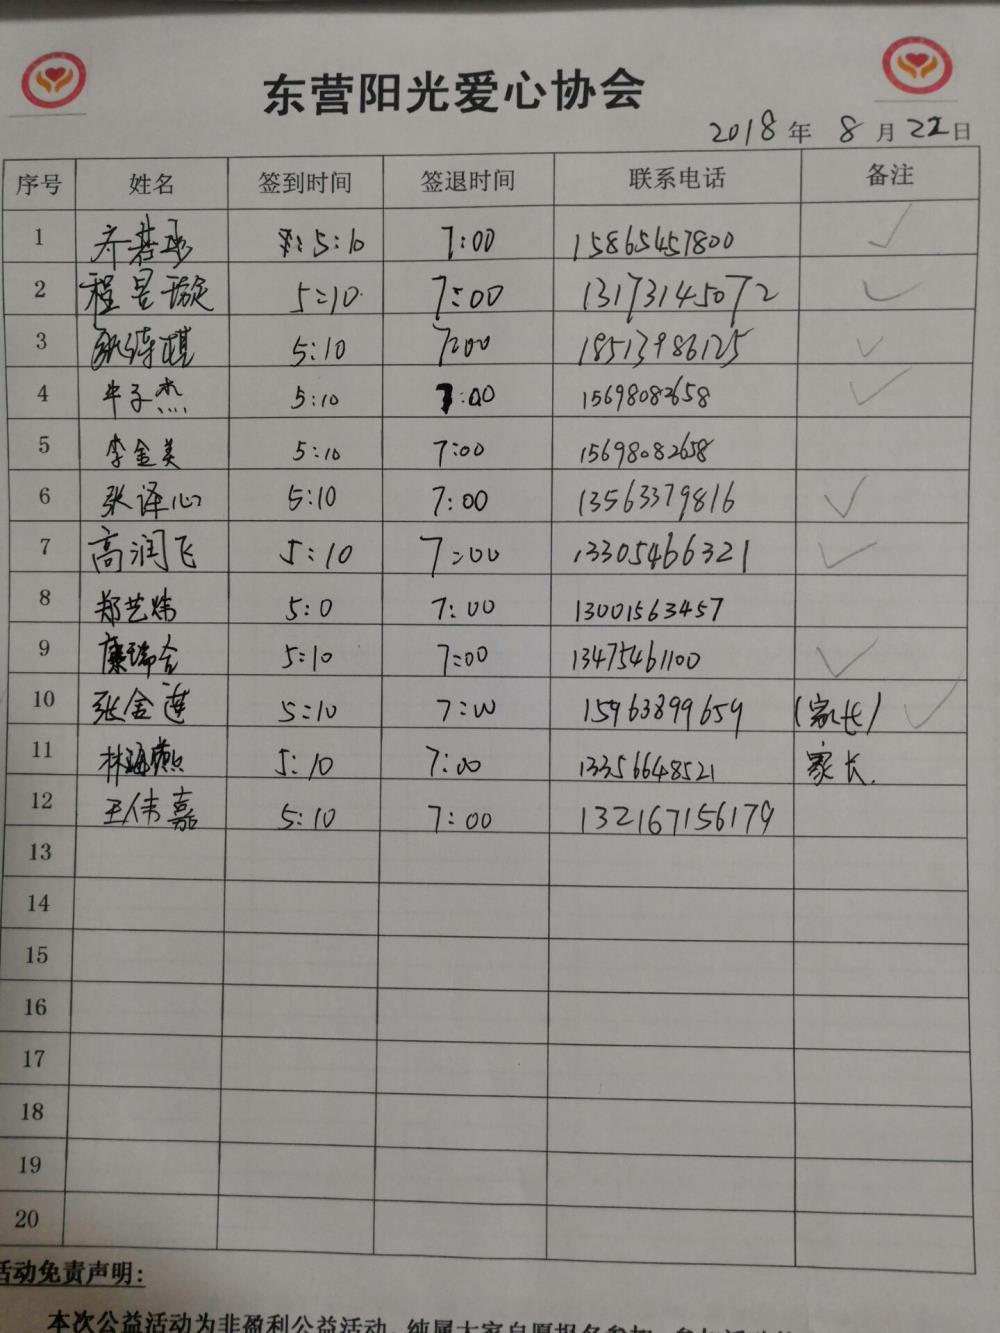 东营阳光爱心协会
2018年 8月22日
序号 姓名 签到时间 签退时间 联系电话 备注
1 齐若彤 5:10 7:00 15865457800 ✓
2 程昱璇 5:10 7:00 13173145072 ✓
3 5:10 7:00 18513986125 ✓
4 牛子杰 5:10 7:00 15698082658 ✓
5 李金美 5:10 7:00 15698082658
6 张译心 5:10 7:00 13563379816 ✓
7 高润飞 5:10 7:00 13305466321 ✓
8 郑艺炜 5:0 7:00 13001563457
9 5:10 7:00 13475461100 ✓
10 张金莲 5:10 7:00 15963899659 (家长) ✓
11 林海燕 5:10 7:00 13356648521 家长.
12 王伟嘉 5:10 7:00 132167156179
13
14
15
16
17
18
19
20
活动免责声明:
本次公益活动为非盈利公益活动,纯属大家自愿报名参加